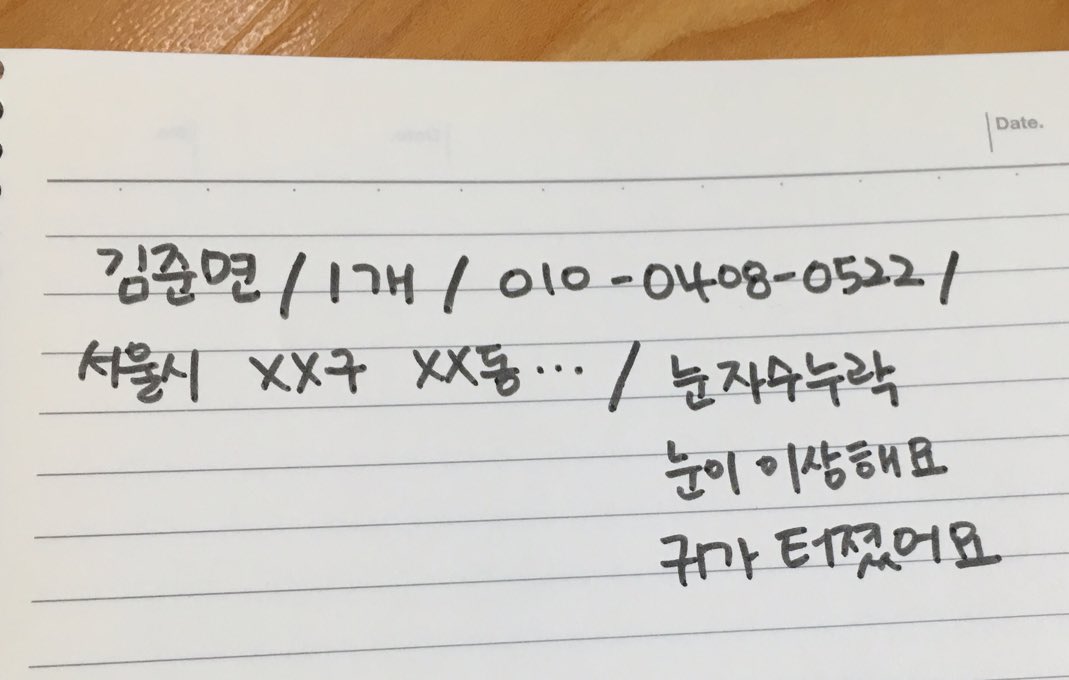 Date.
김준면 / 1개 / 010-0408-0522 /
서울시 XX구 XX동... / 눈자수누락
눈이 이상해요
귀가 터졌어요